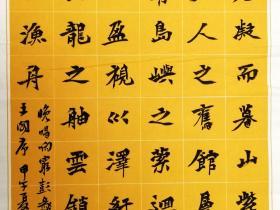 凝而暮山紫
人之舊館層
島嶼之縈迴
盈視川澤紆
龍之舳雲銷
漁舟
晚唱响窮彭蠡
王閣序 甲午夏